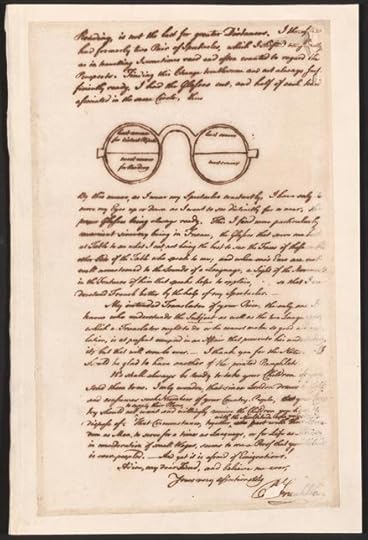 Reading, is not the best for greater Distances. I therefore
had formerly two Pair of Spectacles, which I shifted
as in travelling I sometimes read and often wanted to regard the
Prospects. Finding this Change troublesome and not always suf
ficiently ready, I had the Glasses cut, and half of each kind
associated in the same Circle, thus
least convex
for distant Objects
least convex
most convex
for Reading
most convex
By this means, as I wear my Spectacles constantly, I have only to
move my Eyes up or down as I want to see distinctly far or near, the
proper Glasses being always ready. This I find more particularly
convenient since my being in France, the Glasses that serve me best
at Table to see what I eat, not being the best to see the Faces of those on the
other Side of the Table who speak to me; and when one's Ears are not
well accustomed to the Sounds of a Language, a Sight of the
in the Features of him that speaks helps to explain, so that I
understand French better by the help of my Spectacles.
My intended Translator of your Piece, the only one I
know who understands the Subject as well as the two Languages
which a Translator ought to do or he cannot make so good
is at present occupied in an Affair that prevents his
it; but that will soon be over. I thank you for the Notes.
I should be glad to have another of the printed Pamphlets.
We shall always be ready to take your Children
send them to us. I only wonder, that since London draws
and consumes such Numbers of your Country People, that
should
dispose of. That Circumstance, together with
as Men, to serve for a time as
in consideration of small Wages, seems to me a Proof that your
is over-peopled. And yet it is afraid of Emigrations!
Adieu, my dear Friend, and believe me ever,
Yours very affectionately
B Franklin